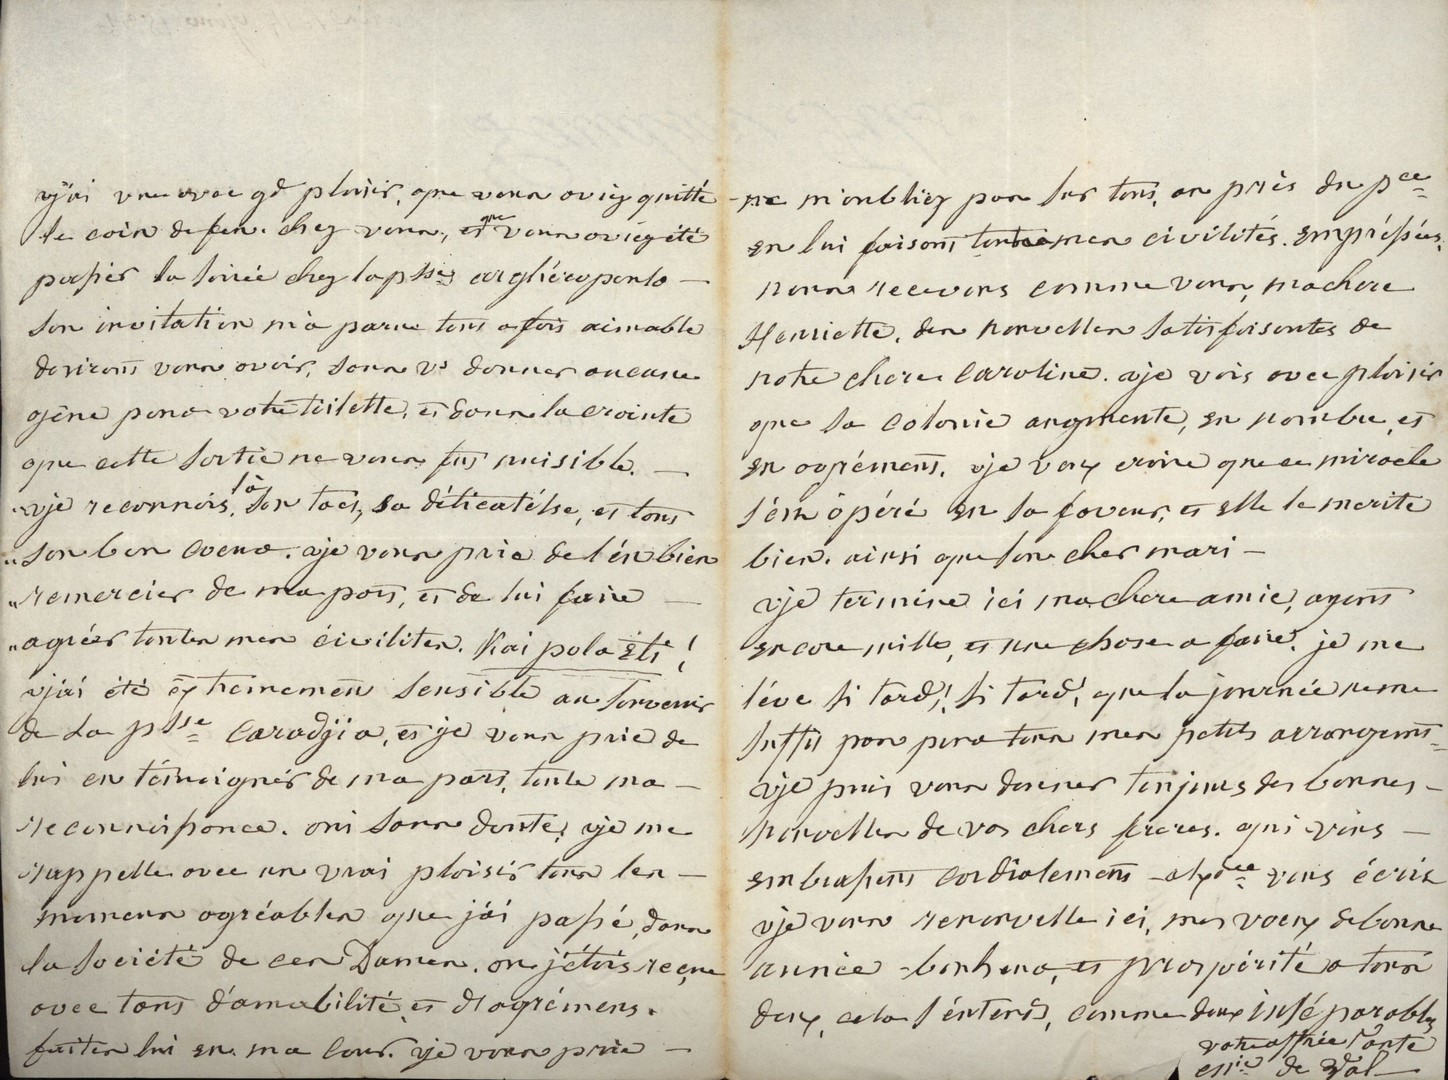 j'ai vue avec gd plaisir, que vous aviez quitté
le coin de feu. chez vous, et que vous aviez été
passer la soirée chez la psse arghiropoulo —
son invitation m'a parue tout a fois aimable
desirant vous avoir, sans vs donner aucune
gêne pour votre toilette, et dans la crainte
que cette sortie ne vous fut nuisible. —
je reconnois, là son tact, sa délicatésse, et tout
son bon coeur. je vous prie de l'én bien
remercier de ma part, et de lui faire —
agréer toutes mes civilites. Kai pola Eti!
j'ai été éxtrememen sensible au souvenir
de La psse Caradjia, et je vous prie de
lui en témoigner de ma part, toute ma —
reconnoissance. oui sans doute, je me
rappelle avec un vrai plaisir tous les —
momens agréables que j'ai passé, dans
la société de ces Dames. ou j'étois reçue
avec tant d'amabilité, et d'agrémens.
faites lui en. ma cour. je vous prie —
ne m'oubliez pas sur tout, au près du pce
en lui faisant toutes mes civilités. empréssées,
nous recevons comme vous, ma chere
Henriette, des nouvelles satisfaisantes de
notre chere Caroline. je vois avec plaisir
que sa colonie augmente, en nombre, et
en agrément. je veux croire que ce miracle
s'ést opéré en sa faveur, et elle le merite
bien. ainsi que son cher mari —
je termine ici ma chere amie, ayant
encore mille, et une chose a faire. je me
léve si tard, si tard, que la journée ne me
suffit pas pour tous mes petits arrangemts
je puis vous donner toujours des bonnes —
nouvelles de vos chers freres. qui vous —
embrassent cordialement — vous écrit
je vous renouvelle ici, mes voeux de bonne
année — bonheur, et prospérité a tous
deux, cela s'éntend, comme deux inséparables
votre affnée Tante
de Wal